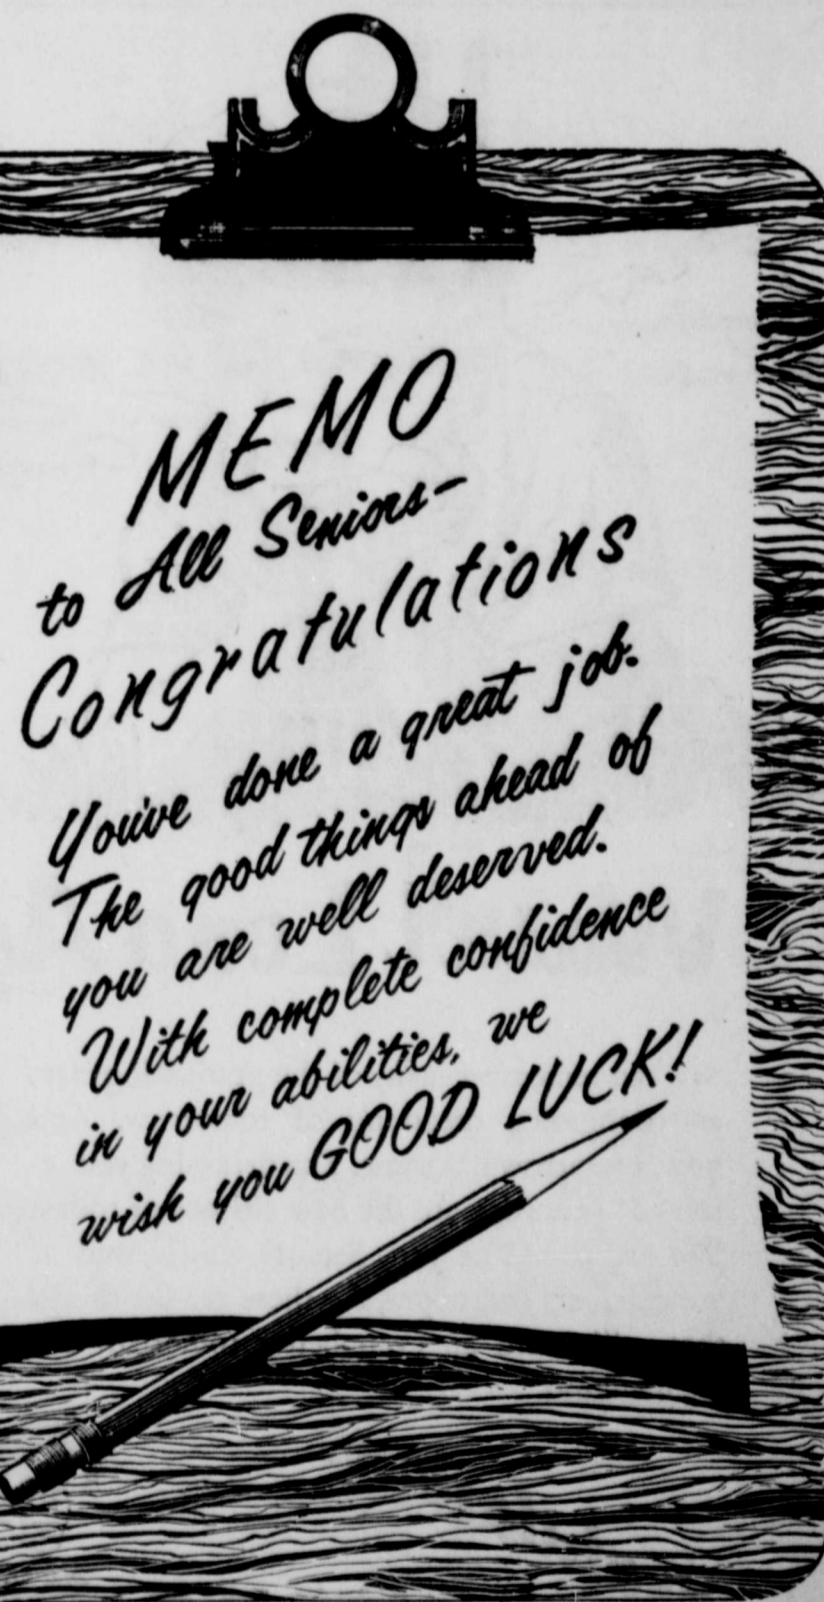 MEMO
to All Seniors-
Congratulations
You've done a great job.
The good things ahead of
you are well deserved.
With complete confidence
in your abilities, we
wish you GOOD LUCK!